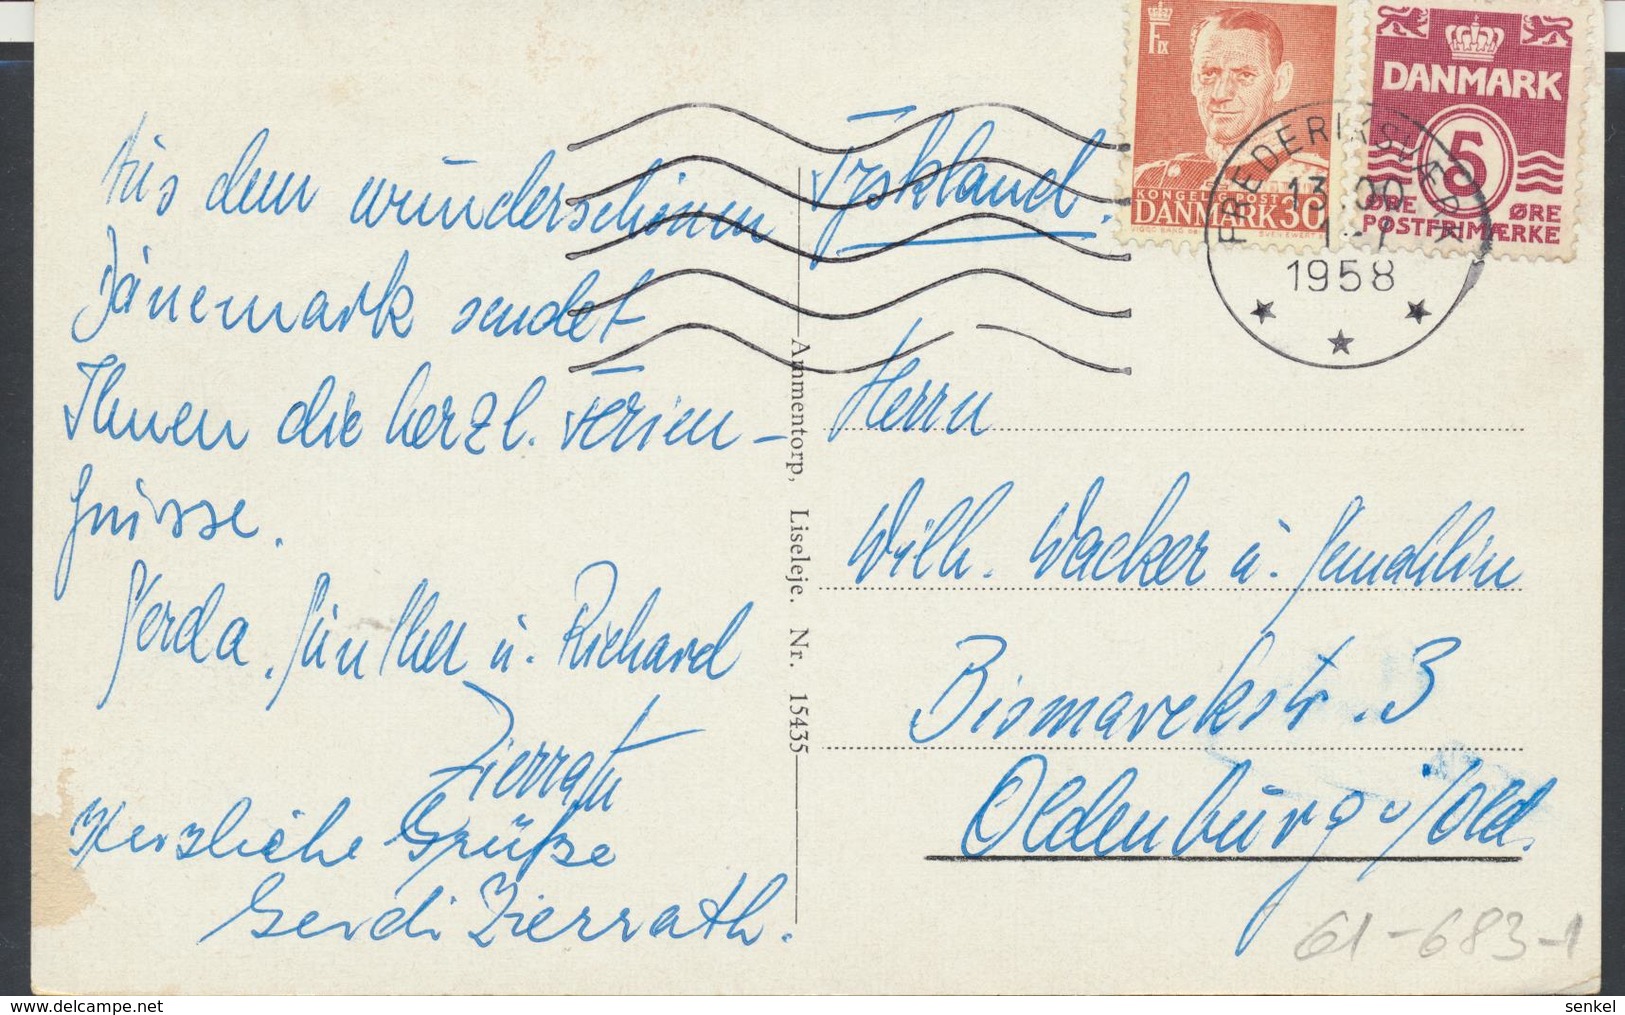 Aus dem wunderschönen
Dänemark sendet
Ihnen die herzl. Ferien-
grüsse.
Gerda, Günther u. Richard
Zierrath
Herzliche Grüße
Gerdi Zierrath.
Ammentorp, Liseleje. Nr. 15435
Tyskland.
Herrn
Wilh. Wacker u. Gemahlin
Bismarckstr. 3
Oldenburg i/Old.
61-683-1
F IX
KONGEL POST
DANMARK 30
DANMARK
5
ØRE ØRE
POSTFRIMÆRKE
FREDERIKSVÆRK
13.00
1958
www.delcampe.net
senkel